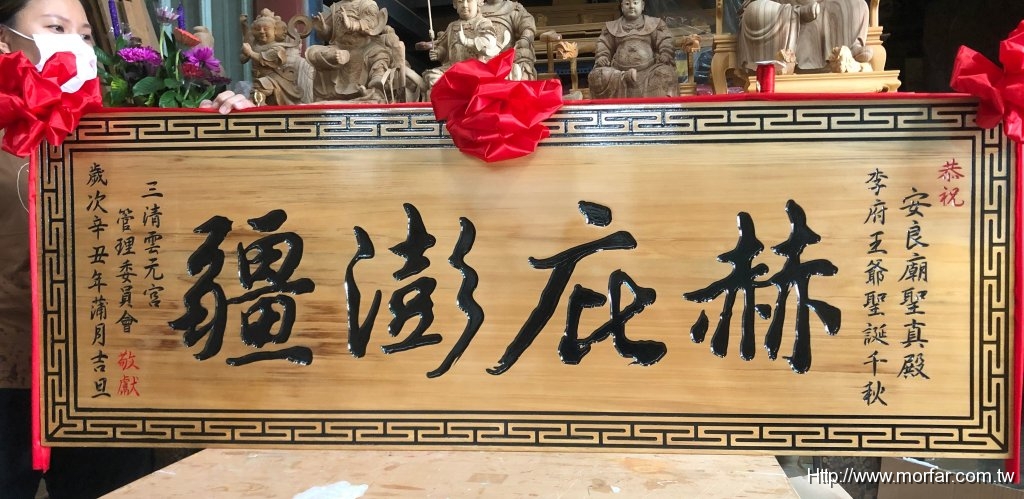 恭祝
安良廟聖真殿
李府王爺聖誕千秋
赫庇澎疆
三清雲元宮
管理委員會
敬獻
歲次辛丑年蒲月吉旦
Http://www.morfar.com.tw